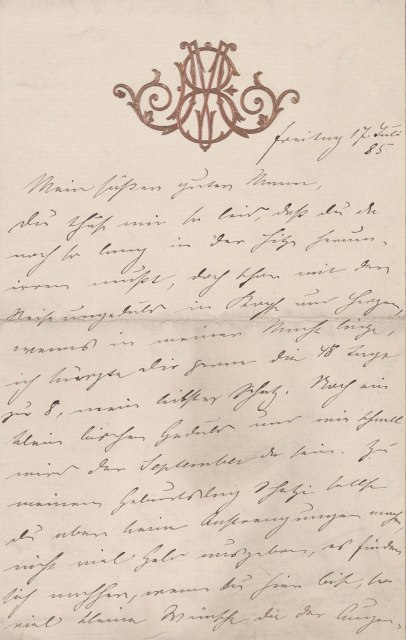 Freitag 17. Juli
85
Mein süßer guter Mann,
Du thust mir so leid, daß du da
noch so lang in der Hitze herum-
irren mußt, doch schon mit dem
Reise ungeduld in Kopf und Herzen,
wenns in meiner Macht läge,
ich kürzte dir gerne die 48 Tage
zu 8, mein liebster Schatz. Noch ein
klein bischen Geduld und wie schnell
wird der September da sein. Zu
meinem Geburtstag Schatzi sollst
du aber keine Anstrengungen machen
nicht viel Geld ausgeben, es finden
sich nachher, wenn du hier bist, so
viel kleine Wünsche die der Augen-